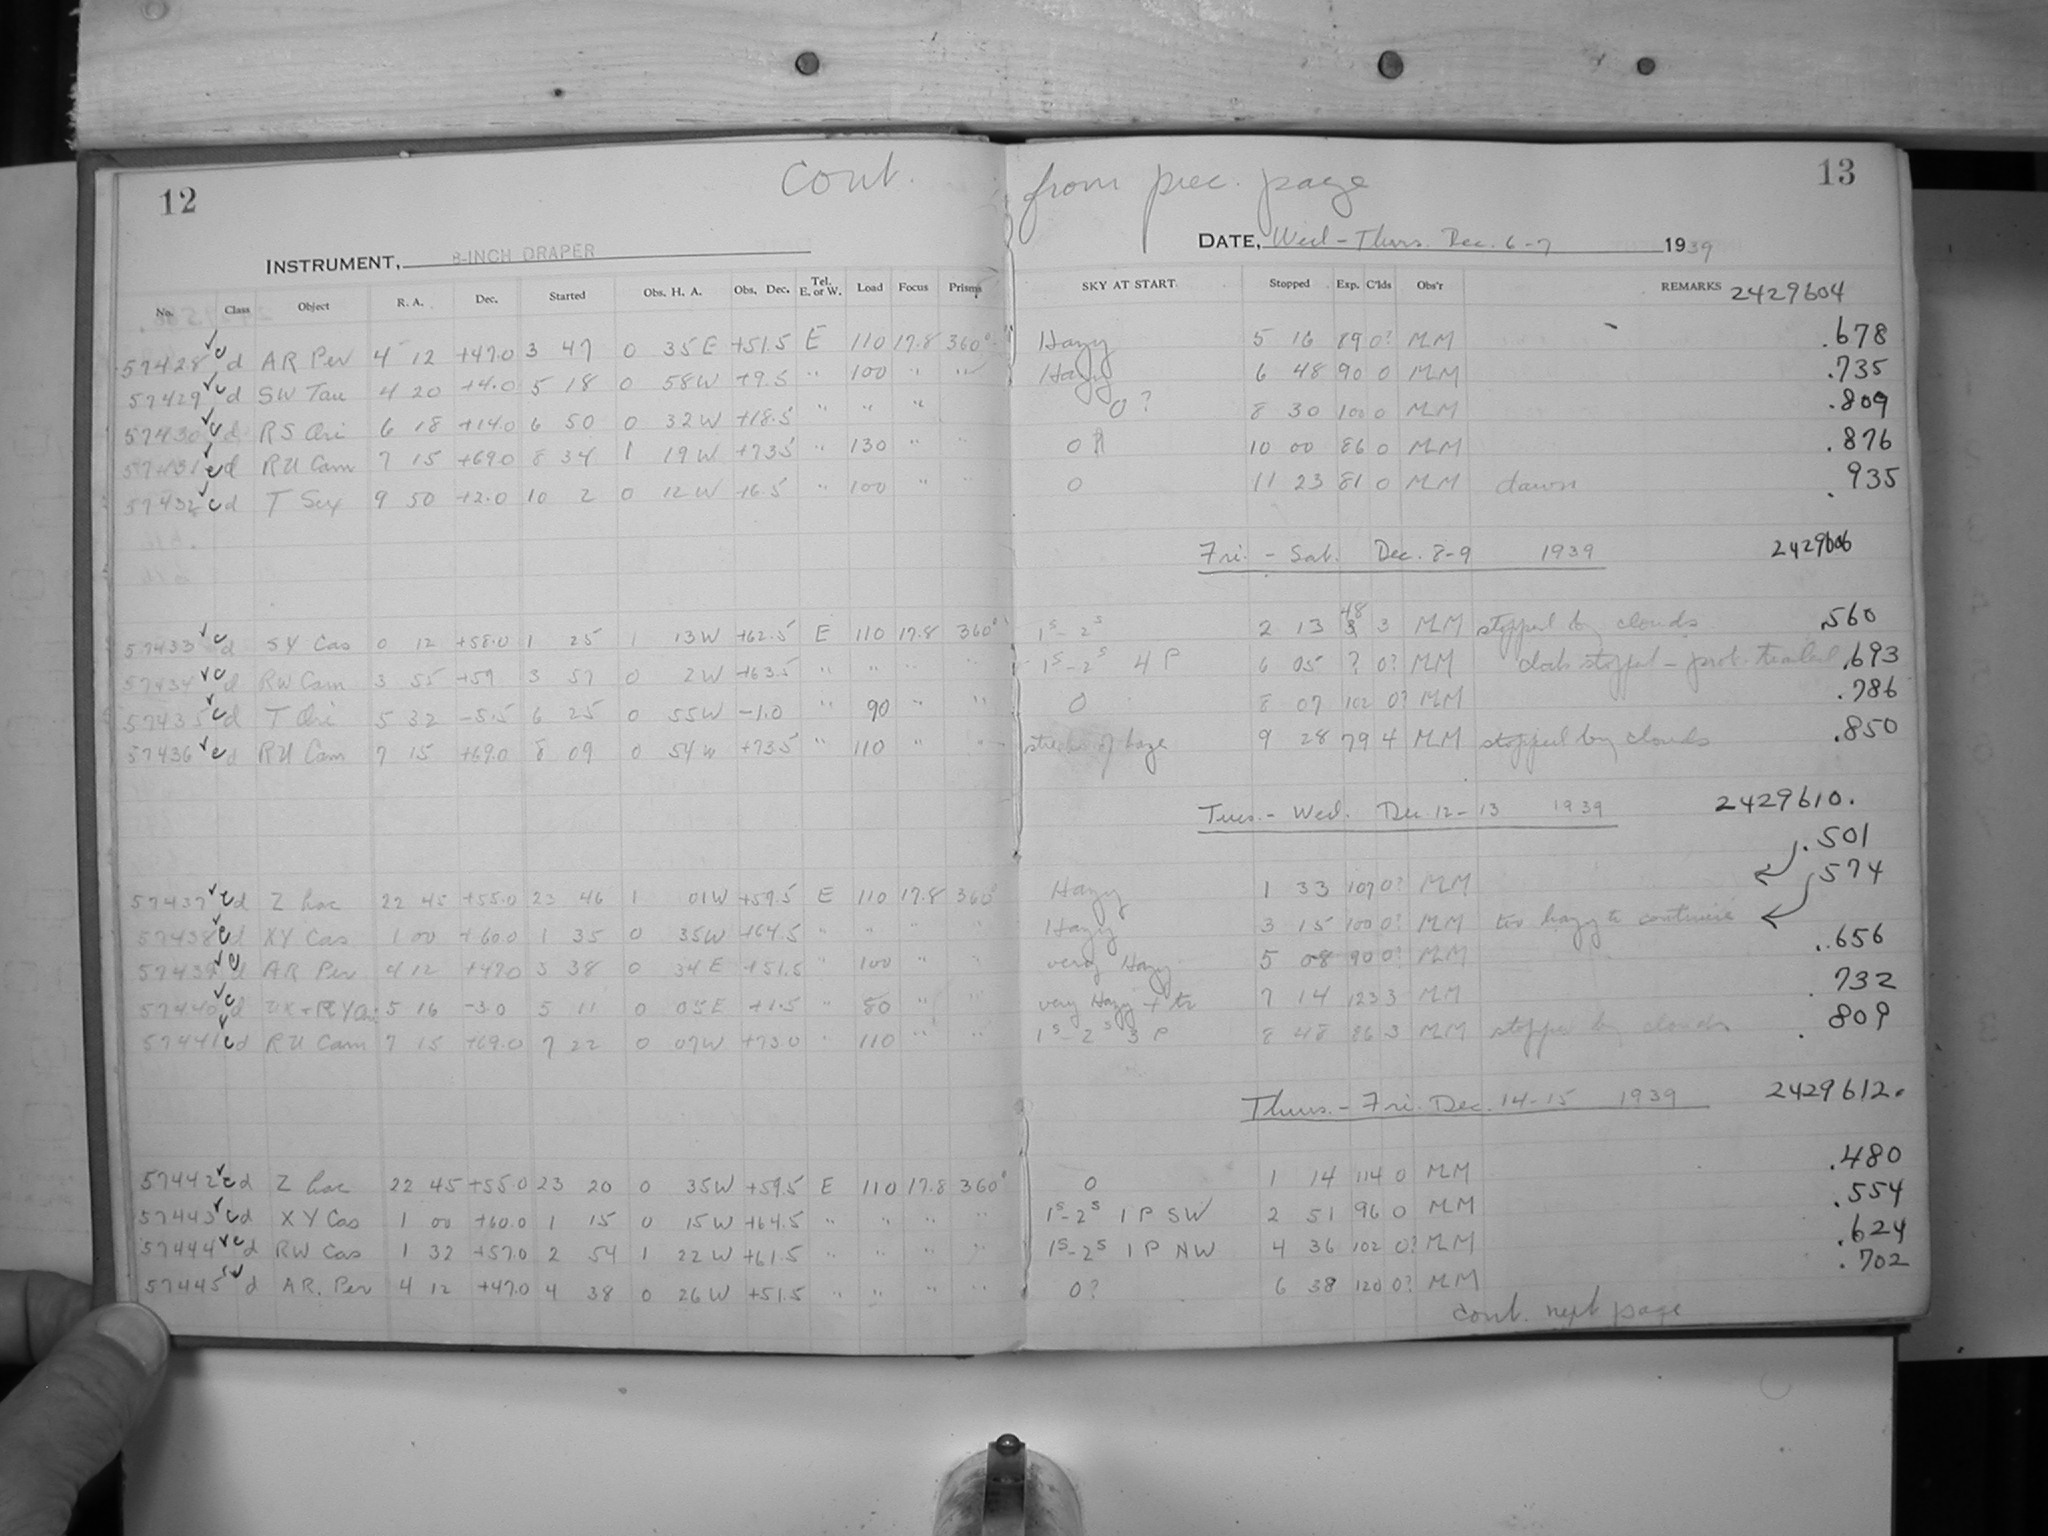 12
cont. from prec. page
13
INSTRUMENT, 8-INCH DRAPER DATE, Wed - Thurs. Dec. 6-7 1939
No. Class Object R. A. Dec. Started Obs. H. A. Obs. Dec. Tel. E. or W. Load Focus Prisms SKY AT START Stopped Exp. C'lds Obs'r REMARKS 2429604
57428 cd AR Per 4 12 +47.0 3 47 0 35 E +51.5 E 110 17.8 360° Hazy 5 16 89 0? MM .678
57429 cd SW Tau 4 20 +4.0 5 18 0 58W +9.5 " 100 " " Hazy 6 48 90 0 MM .735
57430 cd RS Ori 6 18 +14.0 6 50 0 32W +18.5 " " " 0? 8 30 100 0 MM .809
57431 cd RU Cam 7 15 +69.0 8 34 1 19W +73.5 " 130 " " 0 10 00 86 0 MM .876
57432 cd T Sex 9 50 +2.0 10 2 0 12W +6.5 " 100 " " 0 11 23 81 0 MM dawn .935
Fri. - Sat. Dec. 8-9 1939 2429606
57433 cd SY Cas 0 12 +58.0 1 25 1 13W +62.5 E 110 17.8 360° 1s-2s 2 13 48 3 MM stopped by clouds .560
57434 cd RW Cam 3 55 +59 3 57 0 2W +63.5 " " " " 1s-2s 4 P 6 05 ? 0? MM clock stopped - prob. trailed .693
57435 cd T Ori 5 32 -5.5 6 25 0 55W -1.0 " 90 " " 0 8 07 102 0? MM .786
57436 cd RU Cam 7 15 +69.0 8 09 0 54W +73.5 " 110 " streaks of haze 9 28 79 4 MM stopped by clouds .850
Tues. - Wed. Dec 12-13 1939 2429610.
57437 cd Z Lac 22 45 +55.0 23 46 1 01W +59.5 E 110 17.8 360° Hazy 1 33 107 0? MM .501
57438 cd XY Cas 1 00 +60.0 1 35 0 35W +64.5 " " " " Hazy 3 15 100 0? MM too hazy to continue .574
57439 cd AR Per 4 12 +47.0 3 38 0 34E +51.5 " 100 " " very Hazy 5 08 90 0? MM .656
57440 cd UX + RY Ori 5 16 -3.0 5 11 0 05E +1.5 " 80 " " very Hazy + 7 14 123 3 MM .732
57441 cd RU Cam 7 15 +69.0 7 22 0 07W +73.0 " 110 " " 1s-2s 3 P 8 48 86 3 MM stopped by clouds .809
Thurs. - Fri. Dec. 14-15 1939 2429612.
57442 cd Z Lac 22 45 +55.0 23 20 0 35W +59.5 E 110 17.8 360° 0 1 14 114 0 MM .480
57443 cd XY Cas 1 00 +60.0 1 15 0 15W +64.5 " " " " 1s-2s 1 P SW 2 51 96 0 MM .554
57444 cd RW Cas 1 32 +57.0 2 54 1 22W +61.5 " " " " 1s-2s 1 P NW 4 36 102 0? MM .624
57445 d AR. Per 4 12 +47.0 4 38 0 26W +51.5 " " " " 0? 6 38 120 0? MM .702
cont. next page